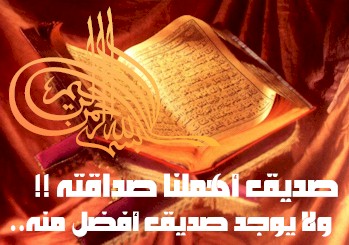 بسم الله الرحمن الرحيم
صديق أهملنا صداقته !!
ولا يوجد صديق أفضل منه..